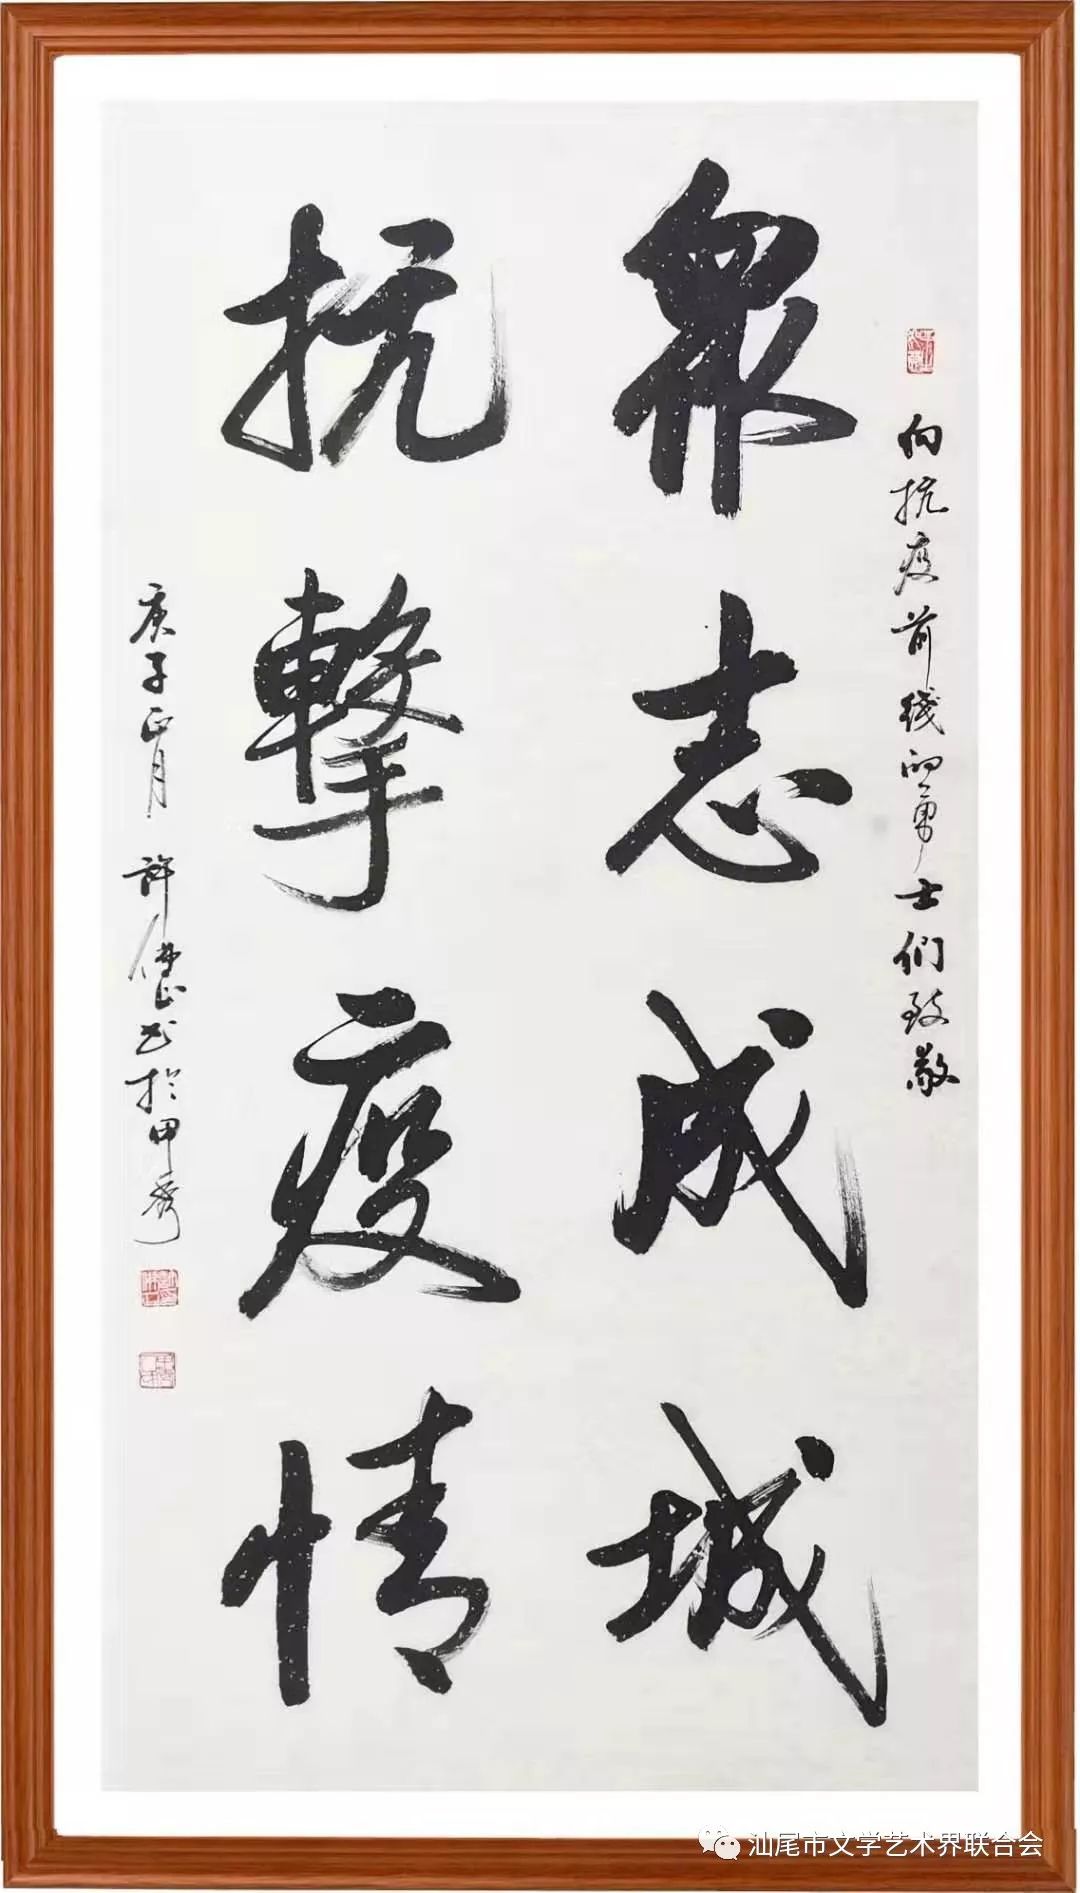 向抗疫前线的勇士们致敬
衆志成城
抗擊疫情
庚子正月 許书於甲秀
汕尾市文学艺术界联合会